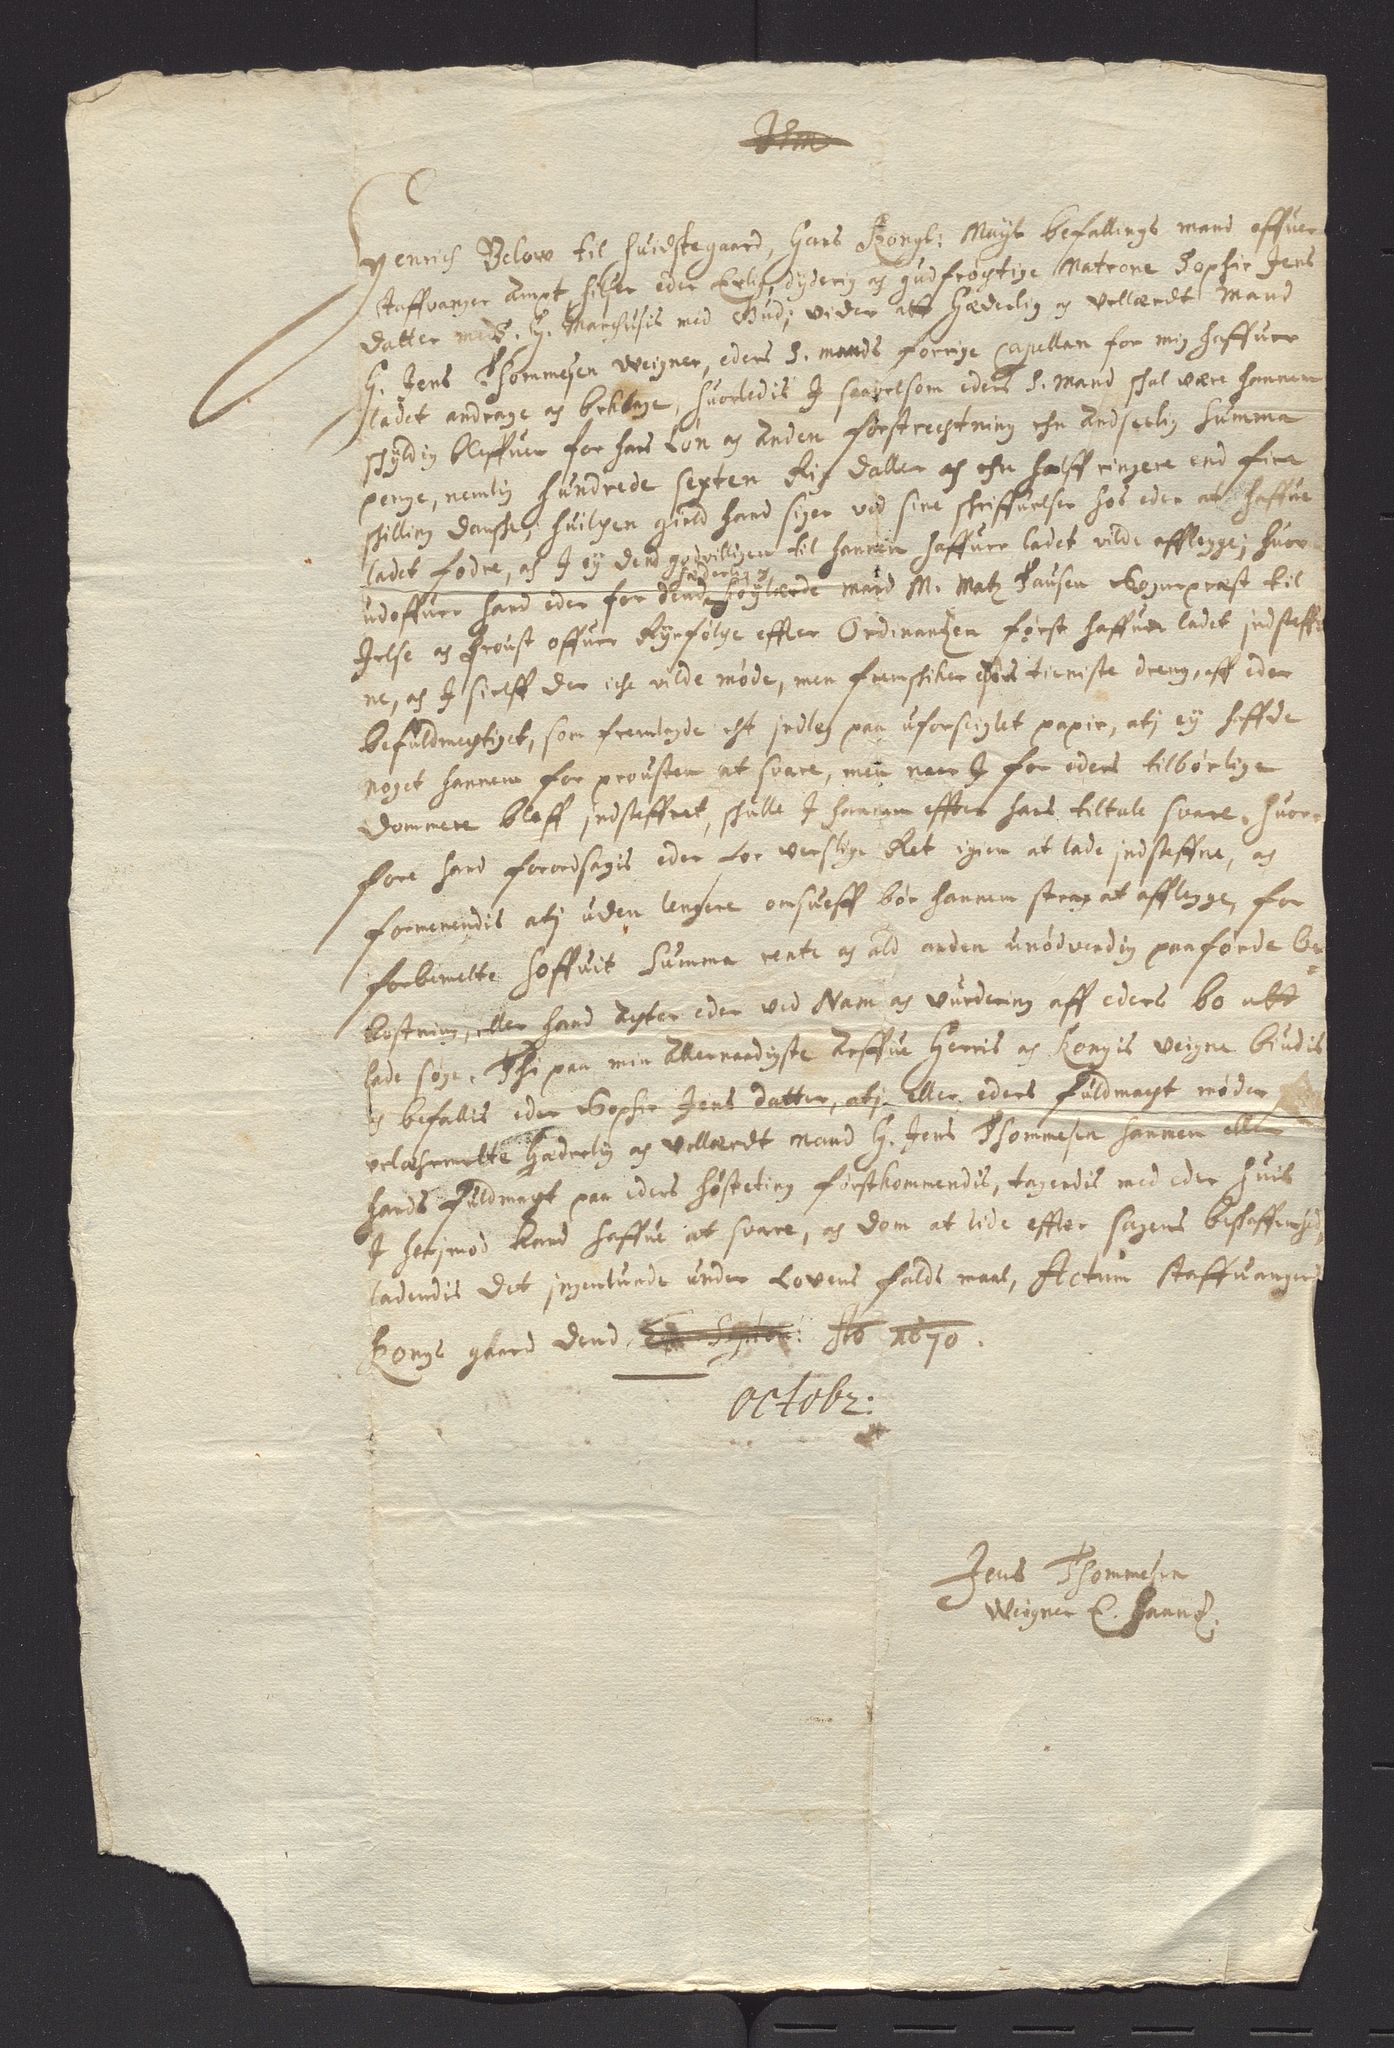 Henrich Below til Huidstegaard, Hans Kongl: Mayst befallings mand offuer
Staffvanger Ampt, hilser eder Erlig, dyderig og gudfrogtige Matrone Sophie Jens
datter H. Marchusis med Gud; vider att Hæderlig og vellærdt Mand
H. Jens Thommesen Weigner, eders S. mands forrige Capellan for mig haffuer
ladet andrage og beklage, huorledis J saauelsom eders S. Mand schal være hannem
schyldig bleffuen for hans Løn og Anden forstrechtning ehn Andseelig Summa
penge, nemlig Hundrede sexten Rix daller og ehn halff ringere end fire
schilling dansche, huilchen gield hand siger ved sine schriffuelser hos eder at haffue
ladet fodre, och J ey dend godvilligen til hannem haffuer ladet vilde afflegge; huor
udoffuer hand eder for dend hæderlig og Høylærde mand M. Matz Pausen Sognepræst til
Jelse og Proust offuer Ryefølge effter Ordinantzen først haffuer ladet indsteff
ne, og J sielff der iche vilde møde, men fremschiker eders tieniste dreng, aff eder
befuldmegtiget, som fremlagde eht indleg paa uforseiglet papir, atj ey haffde
noget hannem for prousten at svare, men naar J for eders tilbørlige
Dommere bleff indsteffnet, schulle J hannem effter hans tiltale svare. Huor-
fore hand foraarsagis eder for verslige Ret igien at lade indsteffne, og
formenendis atj uden lengere omsueff bør hannem strax at afflegge, for
forbemelte Hoffuit Summa rente og ald anden unødvendig paaførde be-
kostning, eller hand agter eder ved Nam og vurdering aff eders bo utt
lade søge. Thi paa min Allernaadigste Arffue Herris og Kongis veigne biudis
og befallis eder Sophie Jens datter, atj eller eders Fuldmagt møder
velbemelte Hæderlig og Vellærdt mand H. Jens Thommesen hannem eller
hands Fuldmagt paa eders høsteting førstkommendis, tagendis med eder huis
J herimod kand haffue at svare, og dom at lide effter sagens beschaffenhed,
ladendis det ingenlunde under Lovens falds maal, Actum Staffuangers
Kongs gaard dend Septem: Ao 1670.
Octobr:
Jens Thommesen
Weigner E. Haand.